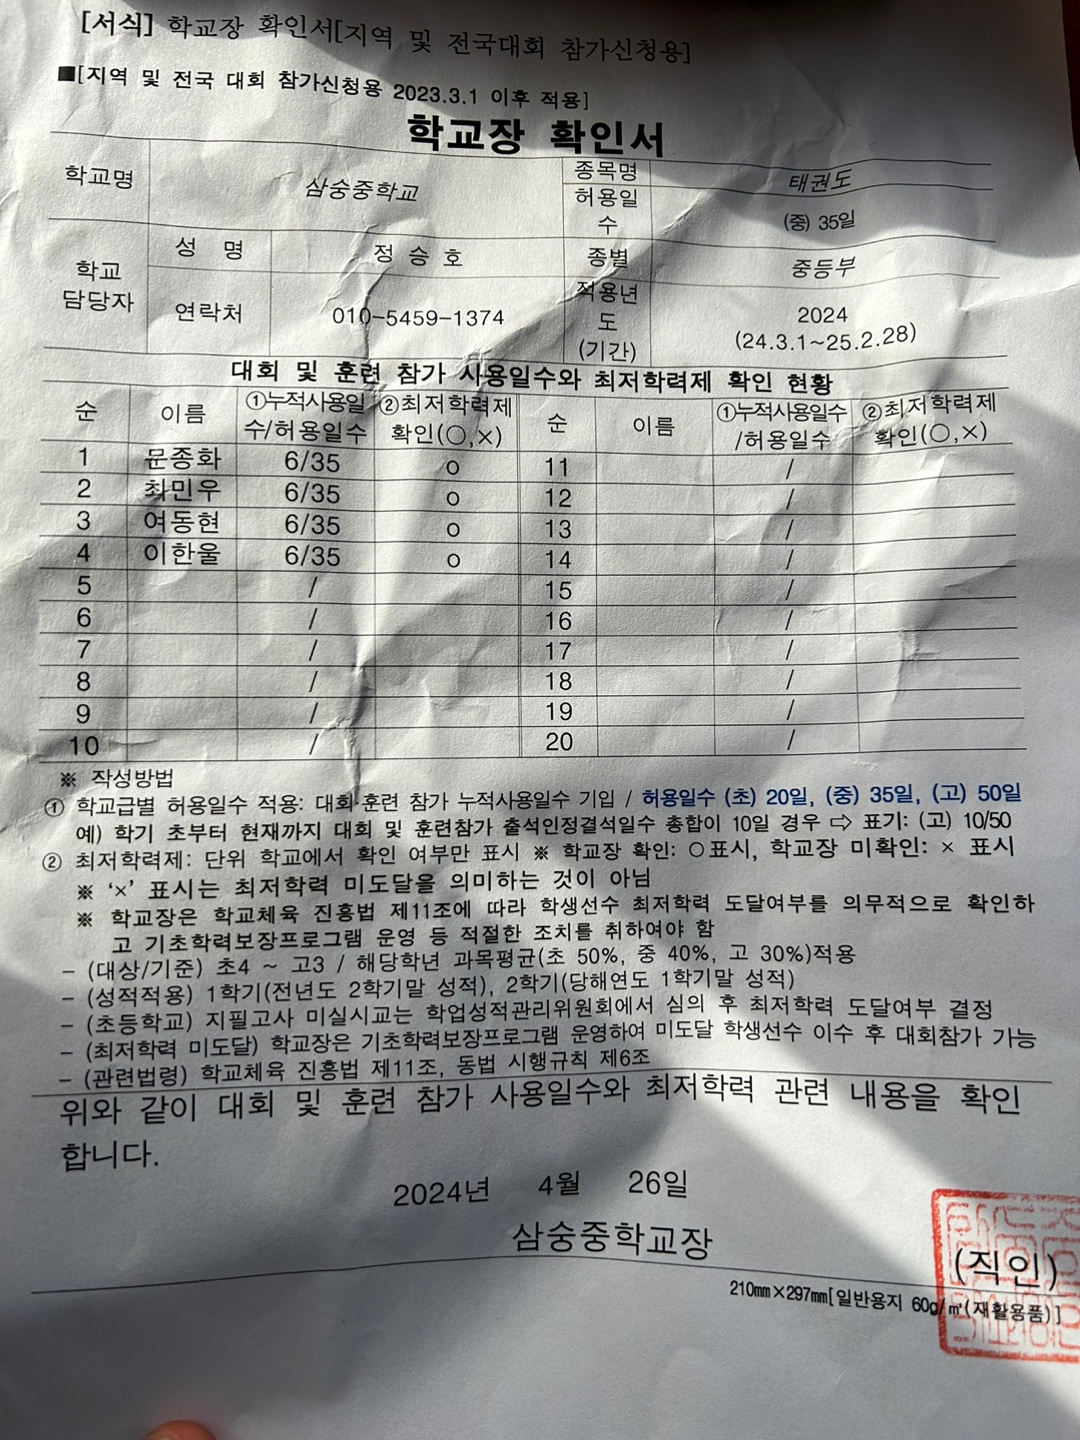 [서식] 학교장 확인서[지역 및 전국대회 참가신청용]
■[지역 및 전국 대회 참가신청용 2023.3.1 이후 적용]
학교장 확인서
학교명 삼숭중학교 종목명 태권도
허용일수 (중) 35일
학교 담당자 성 명 정 승 호 종별 중등부
연락처 010-5459-1374 적용년도 (기간) 2024 (24.3.1~25.2.28)
대회 및 훈련 참가 사용일수와 최저학력제 확인 현황
순 이름 ①누적사용일수/허용일수 ②최저학력제 확인(○,×) 순 이름 ①누적사용일수/허용일수 ②최저학력제 확인(○,×)
1 문종화 6/35 o 11 /
2 최민우 6/35 o 12 /
3 여동현 6/35 o 13 /
4 이한울 6/35 o 14 /
5 / 15 /
6 / 16 /
7 / 17 /
8 / 18 /
9 / 19 /
10 / 20 /
※ 작성방법
① 학교급별 허용일수 적용: 대회·훈련 참가 누적사용일수 기입 / 허용일수 (초) 20일, (중) 35일, (고) 50일
예) 학기 초부터 현재까지 대회 및 훈련참가 출석인정결석일수 총합이 10일 경우 ⇨ 표기: (고) 10/50
② 최저학력제: 단위 학교에서 확인 여부만 표시 ※ 학교장 확인: ○표시, 학교장 미확인: × 표시
※ '×' 표시는 최저학력 미도달을 의미하는 것이 아님
※ 학교장은 학교체육 진흥법 제11조에 따라 학생선수 최저학력 도달여부를 의무적으로 확인하
고 기초학력보장프로그램 운영 등 적절한 조치를 취하여야 함
- (대상/기준) 초4 ~ 고3 / 해당학년 과목평균(초 50%, 중 40%, 고 30%)적용
- (성적적용) 1학기(전년도 2학기말 성적), 2학기(당해연도 1학기말 성적)
- (초등학교) 지필고사 미실시교는 학업성적관리위원회에서 심의 후 최저학력 도달여부 결정
- (최저학력 미도달) 학교장은 기초학력보장프로그램 운영하여 미도달 학생선수 이수 후 대회참가 가능
- (관련법령) 학교체육 진흥법 제11조, 동법 시행규칙 제6조
위와 같이 대회 및 훈련 참가 사용일수와 최저학력 관련 내용을 확인
합니다.
2024년 4월 26일
삼숭중학교장
(직인)
210㎜×297㎜[일반용지 60g/㎡(재활용품)]